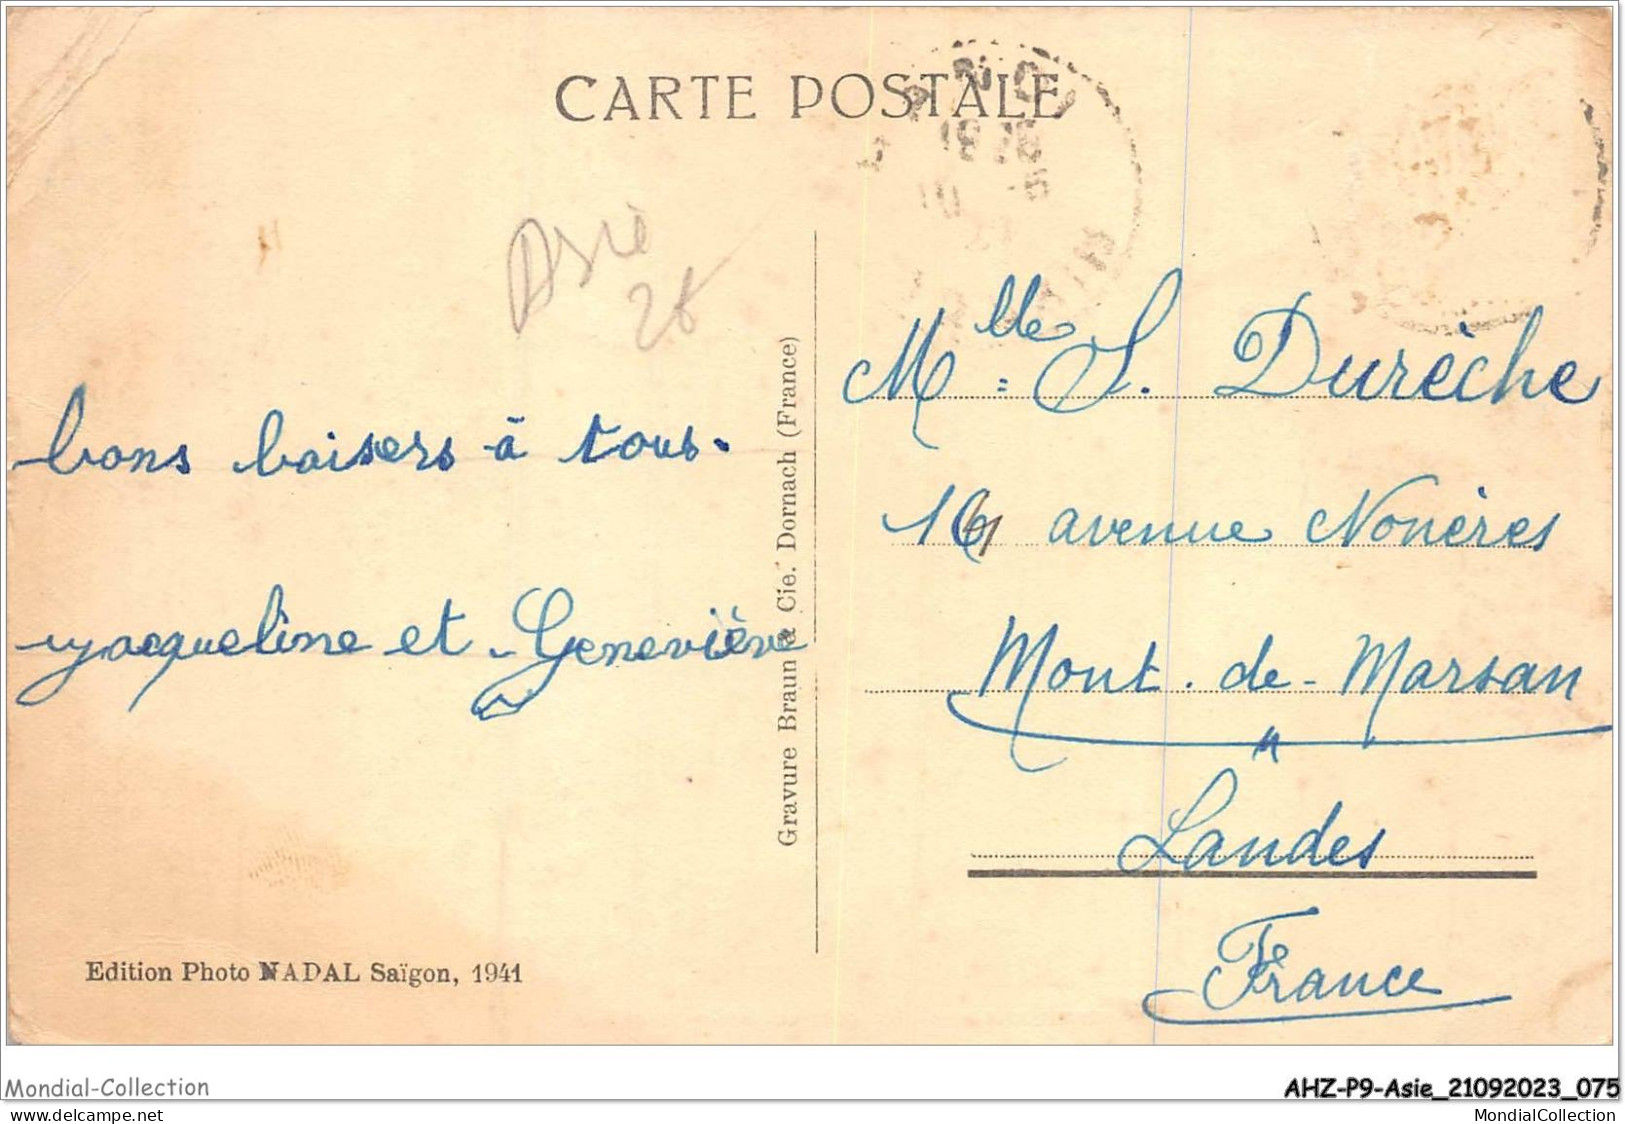 CARTE POSTALE
Asie
bons baisers à tous.
Jacqueline et Geneviève
Gravure Braun & Cie. Dornach (France)
Mlle S. Durèche
avenue Nonères
Mont-de-Marsan
Landes
France
Edition Photo NADAL Saïgon, 1941
Mondial-Collection
AHZ-P9-Asie_21092023_075
www.delcampe.net
MondialCollection